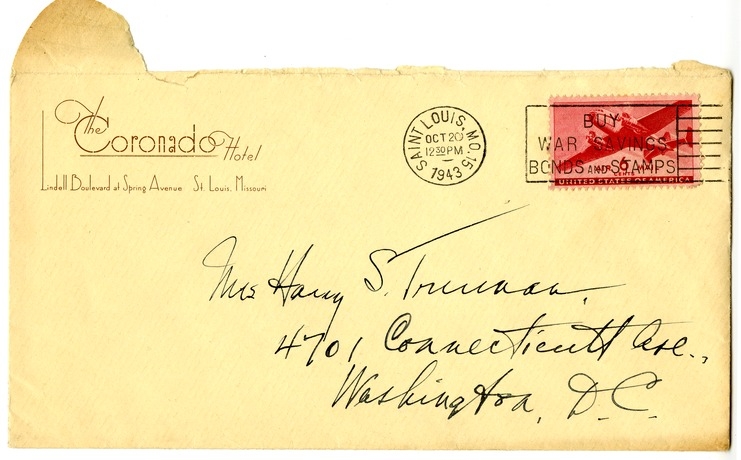 The Coronado Hotel
Lindell Boulevard at Spring Avenue St. Louis, Missouri
SAINT LOUIS, MO. 15
OCT 20
12 30 PM
1943
BUY
WAR SAVINGS
BONDS AND STAMPS
6
CENTS
UNITED STATES OF AMERICA
Mrs Harry S. Truman,
4701 Connecticutt Ave.,
Washington, D.C.